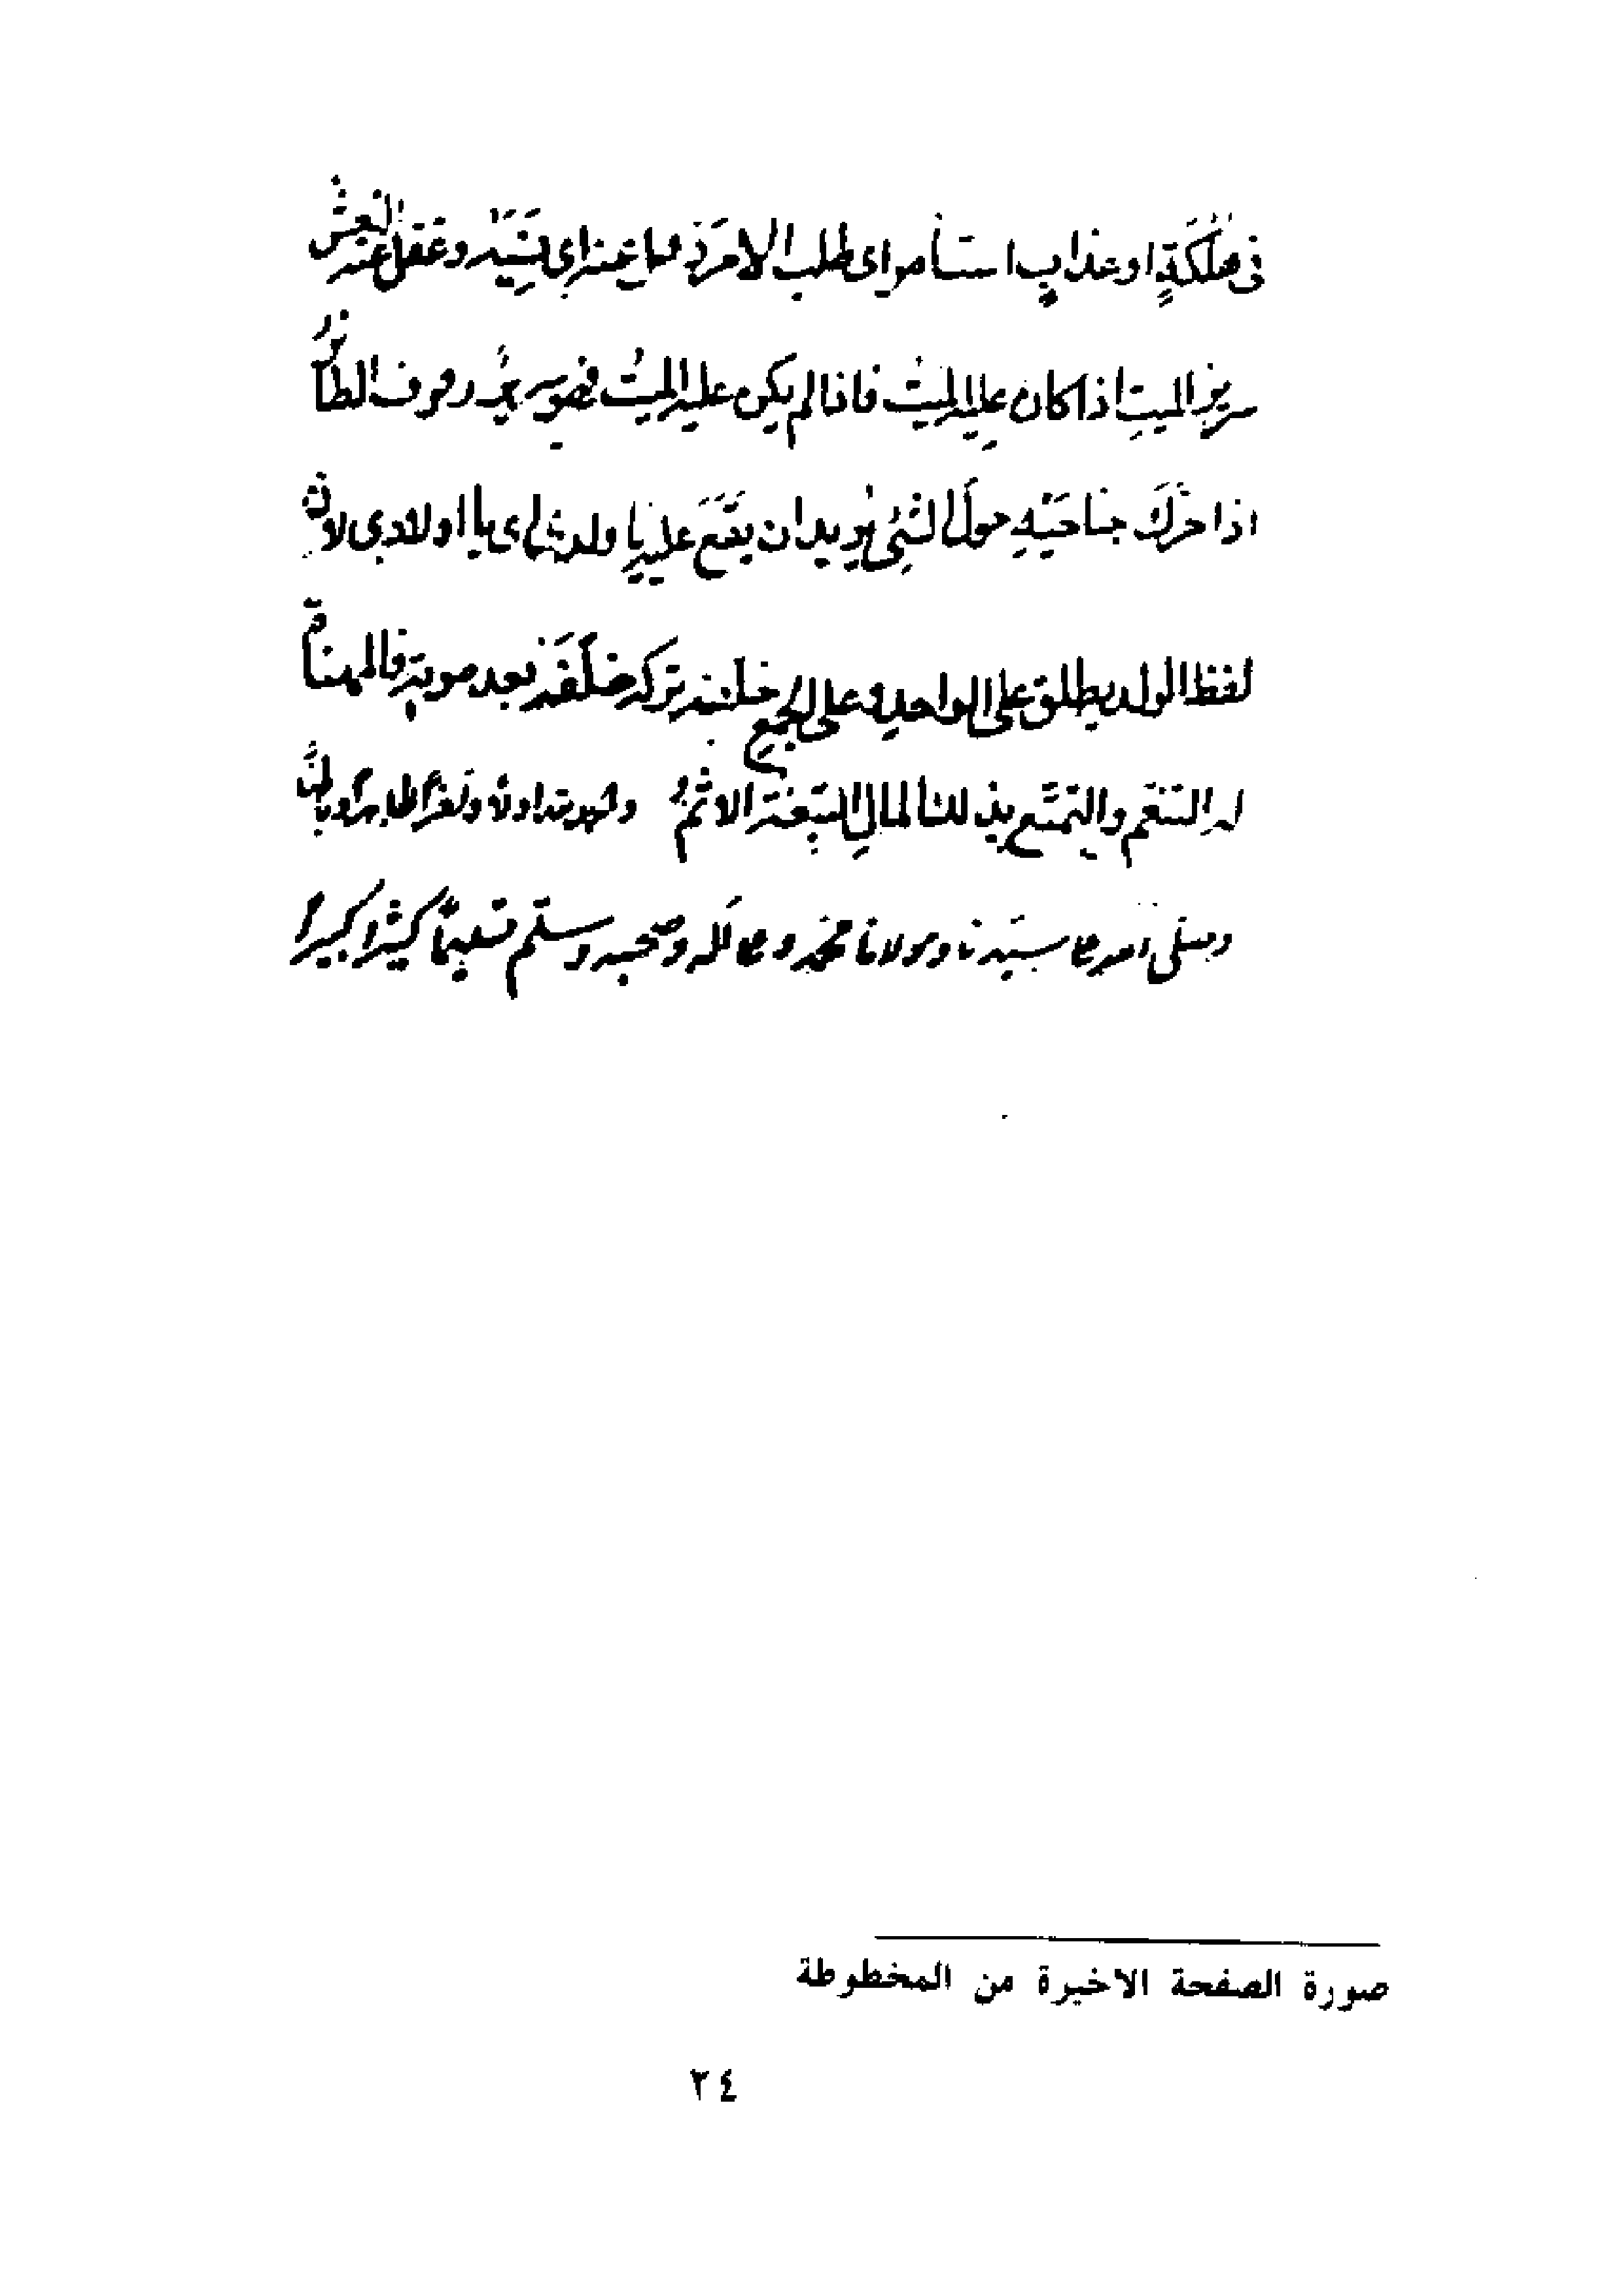 في هلكةٍ او عذابٍ استأمر اى طلب الامرَ ذهل عنه اى نَسِيَه وغفل عنه النعشُ
سرير الميتِ اذا كان عليه الميتُ فاذا لم يكن عليه الميتُ فهو سريرٌ رفرف الطائرُ
اذا حرَّك جناحَيْهِ حولَ الشئِ يُريد ان يقعَ عليه يا ولدى اى يا اولادى لانّ
لفظ الولد يطلق على الواحد وعلى الجمع خلفته تركته خلفَه بعد موته فالمهنأ
له التنعّم والتمتّع بذلك المالِ التبِعَة الاثمُ والحمد لله اولًا وآخرًا ظاهرًا وباطنًا
وصلى الله على سيّدنا ومولانا محمّد وعلى آله وصحبه وسلّم تسليمًا كثيرًا كبيرًا
صورة الصفحة الاخيرة من المخطوطة
٢٤